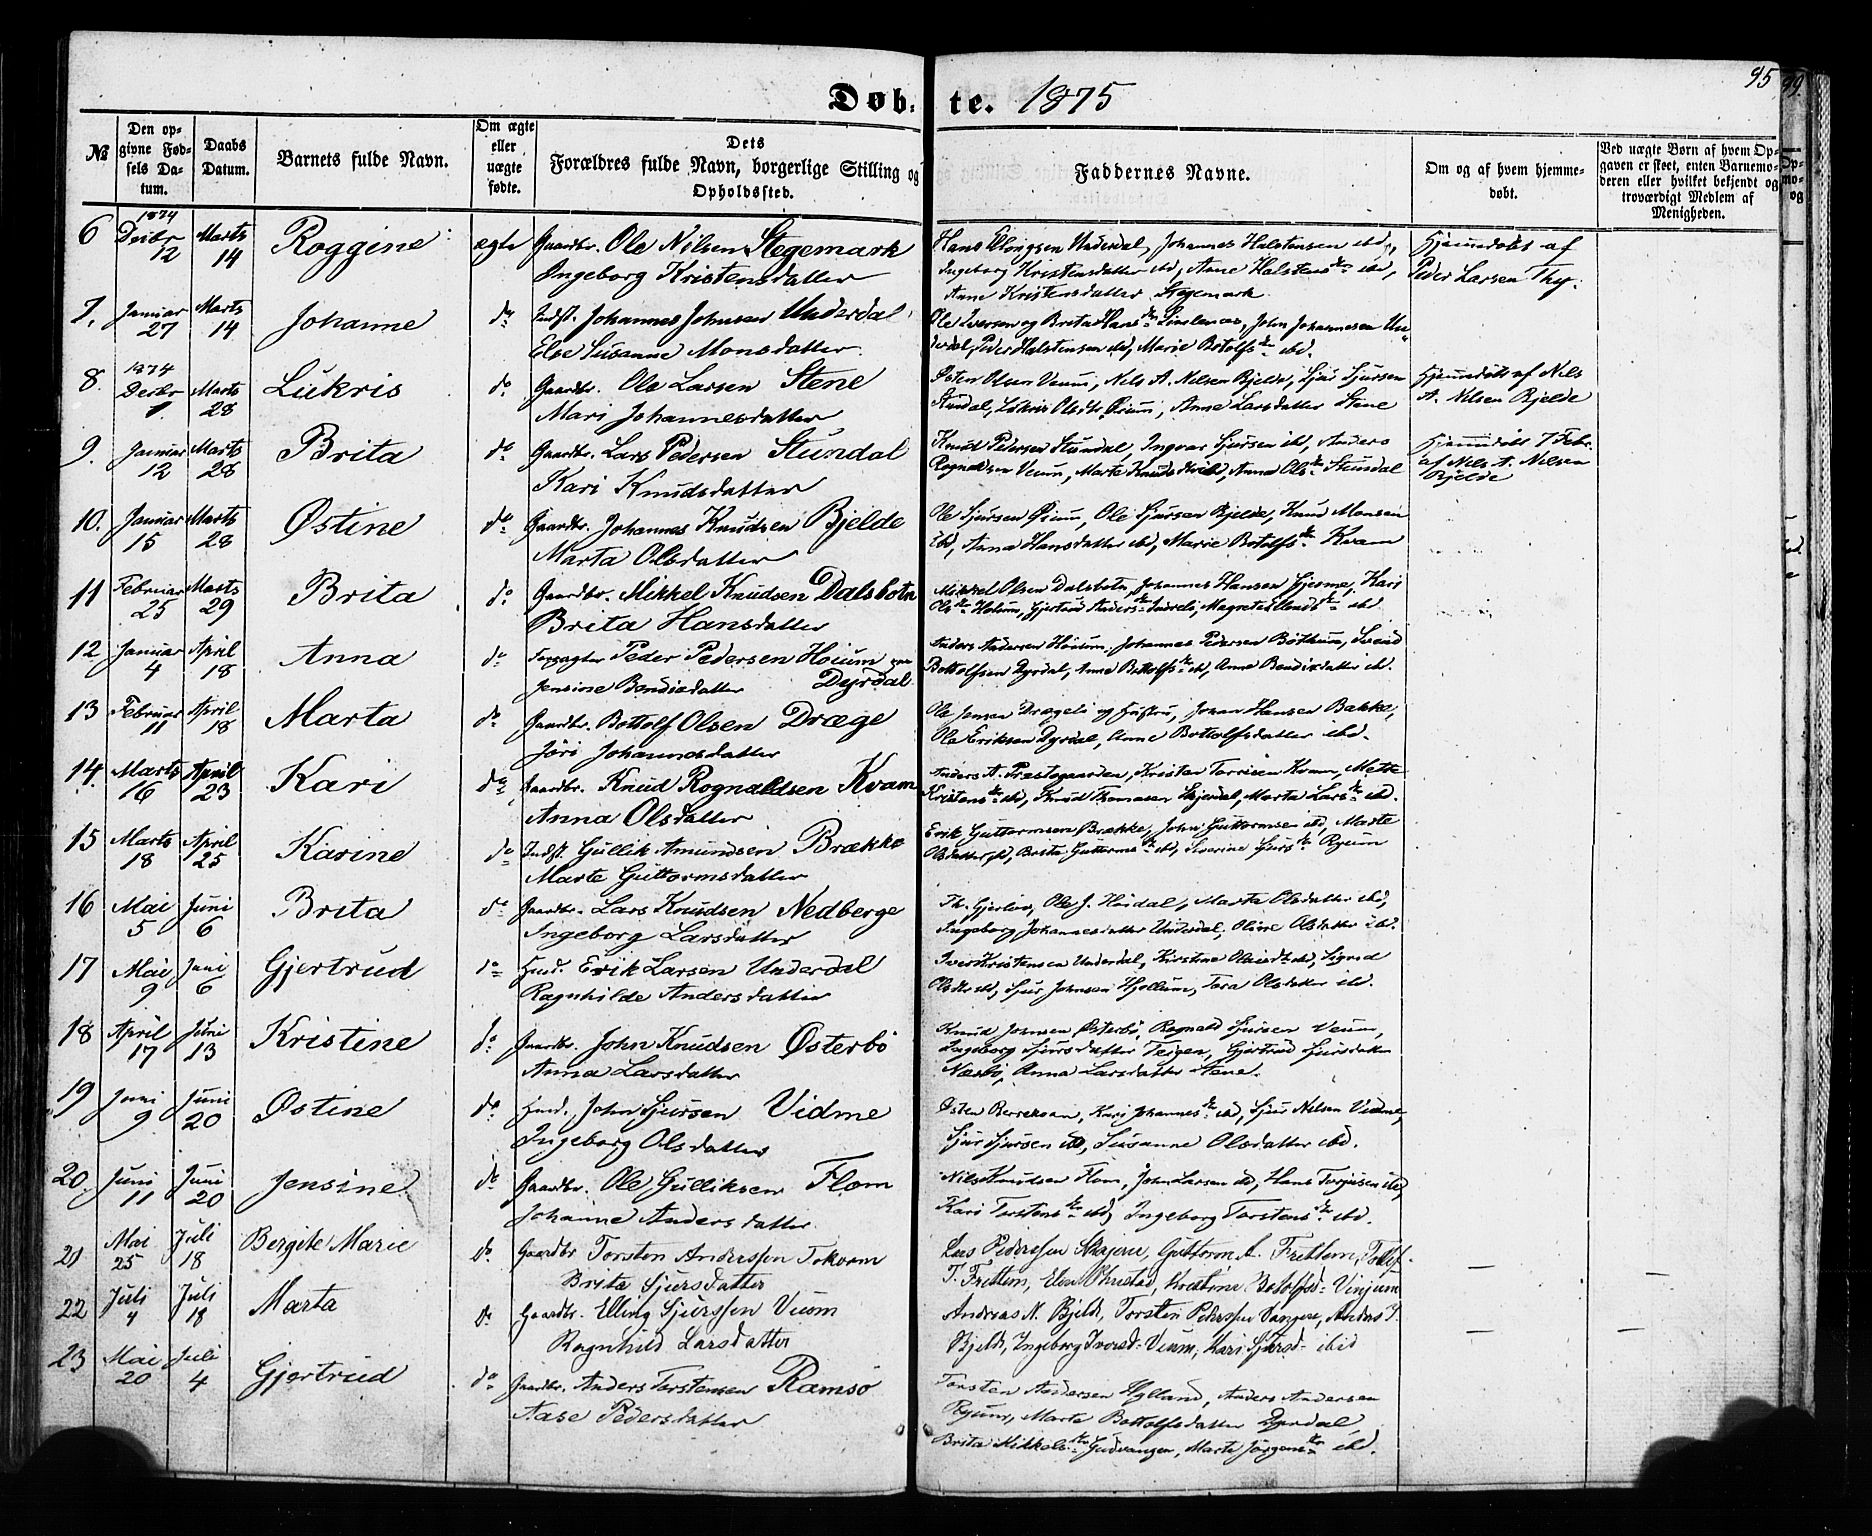 95
99
Døb-te. 1875
№
Den opgivne Fødsels Datum.
Daabs Datum.
Barnets fulde Navn.
Om ægte eller uægte fødte.
Dets Forældres fulde Navn, borgerlige Stilling og Opholdssted.
Faddernes Navne.
Om og af hvem hjemmedøbt.
Ved uægte Børn af hvem Opgaven er skeet, enten Barnemoderen eller hvilket bekjendt og troværdigt Medlem af Menigheden.
6 1874 Desbr 12 Marts 14 Roggine ægte Gaardbr. Ole Nilsen Stegemark
Ingeborg Kristensdatter
Hans Ellingsen Underdal, Johannes Halstensen ibd,
Ingeborg Kristensdatter ibd, Anne Halstensdtr ibd,
Anne Kristensdatter Stegemark
Hjemmedøbt af
Peder Larsen Thy.
7. Januar 27 Marts 14 Johanne do Indst. Johannes Johnsen Underdal
Else Susanne Monsdatter
Ole Iversen og Brita Hansdtr, John Johannesen Un-
derdal, Peder Halstensen ibd, Marie Botolfsdtr ibd.
8. 1874 Desbr 1. Marts 28 Lukris do Gaardbr. Ole Larsen Stene
Mari Johannesdatter
Østen Olsen Veum, Nels A. Nelsen Bjelde, Sjur Sjursen
Stundal, Lukris Olsdtr Øium, Anne Larsdatter Stene
Hjemmedøbt af Nels
A. Nelsen Bjelde
9. Januar 12 Marts 28 Brita do Gaardbr. Lars Pedersen Stundal
Kari Knudsdatter
Knud Pedersen Stundal, Ingvar Sjursen ibd, Anders
Rognaldsen Veum, Marte Knudsdtr ibd, Anna Olsdtr Stundal
Hjemmedøbt 7 Febr.
af Nels A. Nelsen
Bjelde
10. Januar 15 Marts 28 Østine do Gaardbr. Johannes Knudsen Bjelde
Marta Olsdatter
Ole Sjursen Øium, Ole Sjursen Bjelde, Knud Monsen
ibd, Anna Hansdatter ibd, Marie Botolfsdtr Kvam
11 Februar 25 Marts 29 Brita do Gaardbr. Mikkel Knudsen Dalsbotn
Brita Hansdatter
Mikkel Olsen Dalsbotn, Johannes Hansen Gjesme, Kari
Olsdtr Holum, Gjertrud Andersdtr
12 Januar 4 April 18 Anna do Forpagter Peder Pedersen Høium
Jensine Bendixdatter Dyrdal
Anders Andersen Høium, Johannes Pedersen Bøthun, Sveind
Bottolfsen Dyrdal, Anne Bottolfsdtr ibd, Anne Bendixdatter ibd.
13 Februar 11 April 18 Marta do Gaardbr. Bottolf Olsen Dræge
Jøri Johannesdatter
Ole Jensen Drægeli og Hustru, Johan Hansen Bakke,
Ole Eriksen Dyrdal, Anne Bottolfsdatter ibd.
14. Marts 16 April 23 Kari do Gaardbr. Knud Rognaldsen Kvam
Anna Olsdatter
Anders A. Prestegaarden, Kristen Torrisen Kvam, Mette
Kristensdtr ibd, Knud Thomasen Skjerdal, Marta Larsdtr ibd.
15 Marts 18 April 25 Karine do Indst. Gullik Amundsen Brække
Marte Guttormsdatter
Erik Guttormsen Brække, John Guttormsen ibd, Marte
Olsdatter ibd, Brita Guttormsdtr ibd, Severine Sjursdtr Ryum
16 Mai 5 Juni 6 Brita do Gaardbr. Lars Knudsen Nedberge
Ingeborg Larsdatter
Th. Gjerløv, Ole J. Høidal, Marta Olsdatter ibd,
Ingeborg Johannesdatter Underdal, Oline Olsdatter ibd.
17 Mai 9 Juni 6 Gjertrud do Hmd. Erik Larsen Underdal
Ragnhilde Andersdatter
Iver Kristensen Underdal, Kirstine Olsdtr ibd, Signed
Olsdtr ibd, Sjur Johnsen Hjellum, Tora Olsdatter ibd.
18 April 17 Juni 13 Kristine do Gaardbr. John Knudsen Østerbø
Anna Larsdatter
Knud Johnsen Østerbø, Rognald Sjursen Veum,
Ingeborg Sjursdatter Teigen, Gjertrud Sjursdatter
Næsbø, Anna Larsdatter Stene.
19 Juni 9 Juni 20 Østine do Hmd. John Sjursen Vidme
Ingeborg Olsdatter
Østen Berrekvam, Kari Johannesdtr ibd, Sjur Nilsen Vidme,
Sjur Sjursen ibd, Susanne Olsdatter ibd.
20. Juni 11 Juni 20 Jensine do Gaardbr. Ole Gulliksen Flom
Johanne Andersdatter
Nils Knudsen Flom, John Larsen ibd, Hans Torjusen ibd,
Kari Torstensdtr ibd, Ingeborg Torstensdtr ibd.
21 Mai 25 Juli 18 Bergite Marie do Gaardbr Torsten Anderssen Tokvam
Brita Sjursdatter
Lars Pederssen Skajem, Guttorm A. Fretlem, Tollef
T. Fretlem, Kristine Botolfsd- Vinjum
22 Juli 4 Juli 18 Marta do Gaardbr. Elling Sjurssen Vium
Ragnhild Larsdatter
Andreas N. Bjelde, Torsten Pederssen Vangen, Anders J.
Bjelde, Ingeborg Iversd- Veum, Kari Sjursd- ibid
23 Mai 20 Juli 4 Gjertrud do Gaardbr. Anders Torstensen Ramsø
Aase Pedersdatter
Torsten Andersen Hylland, Anders Andersen
Ryum, Marta Bottolfsdatter Dyrdal,
Brita Mikkelsdtr Gudvangen, Marta Jørgensdtr ibd.